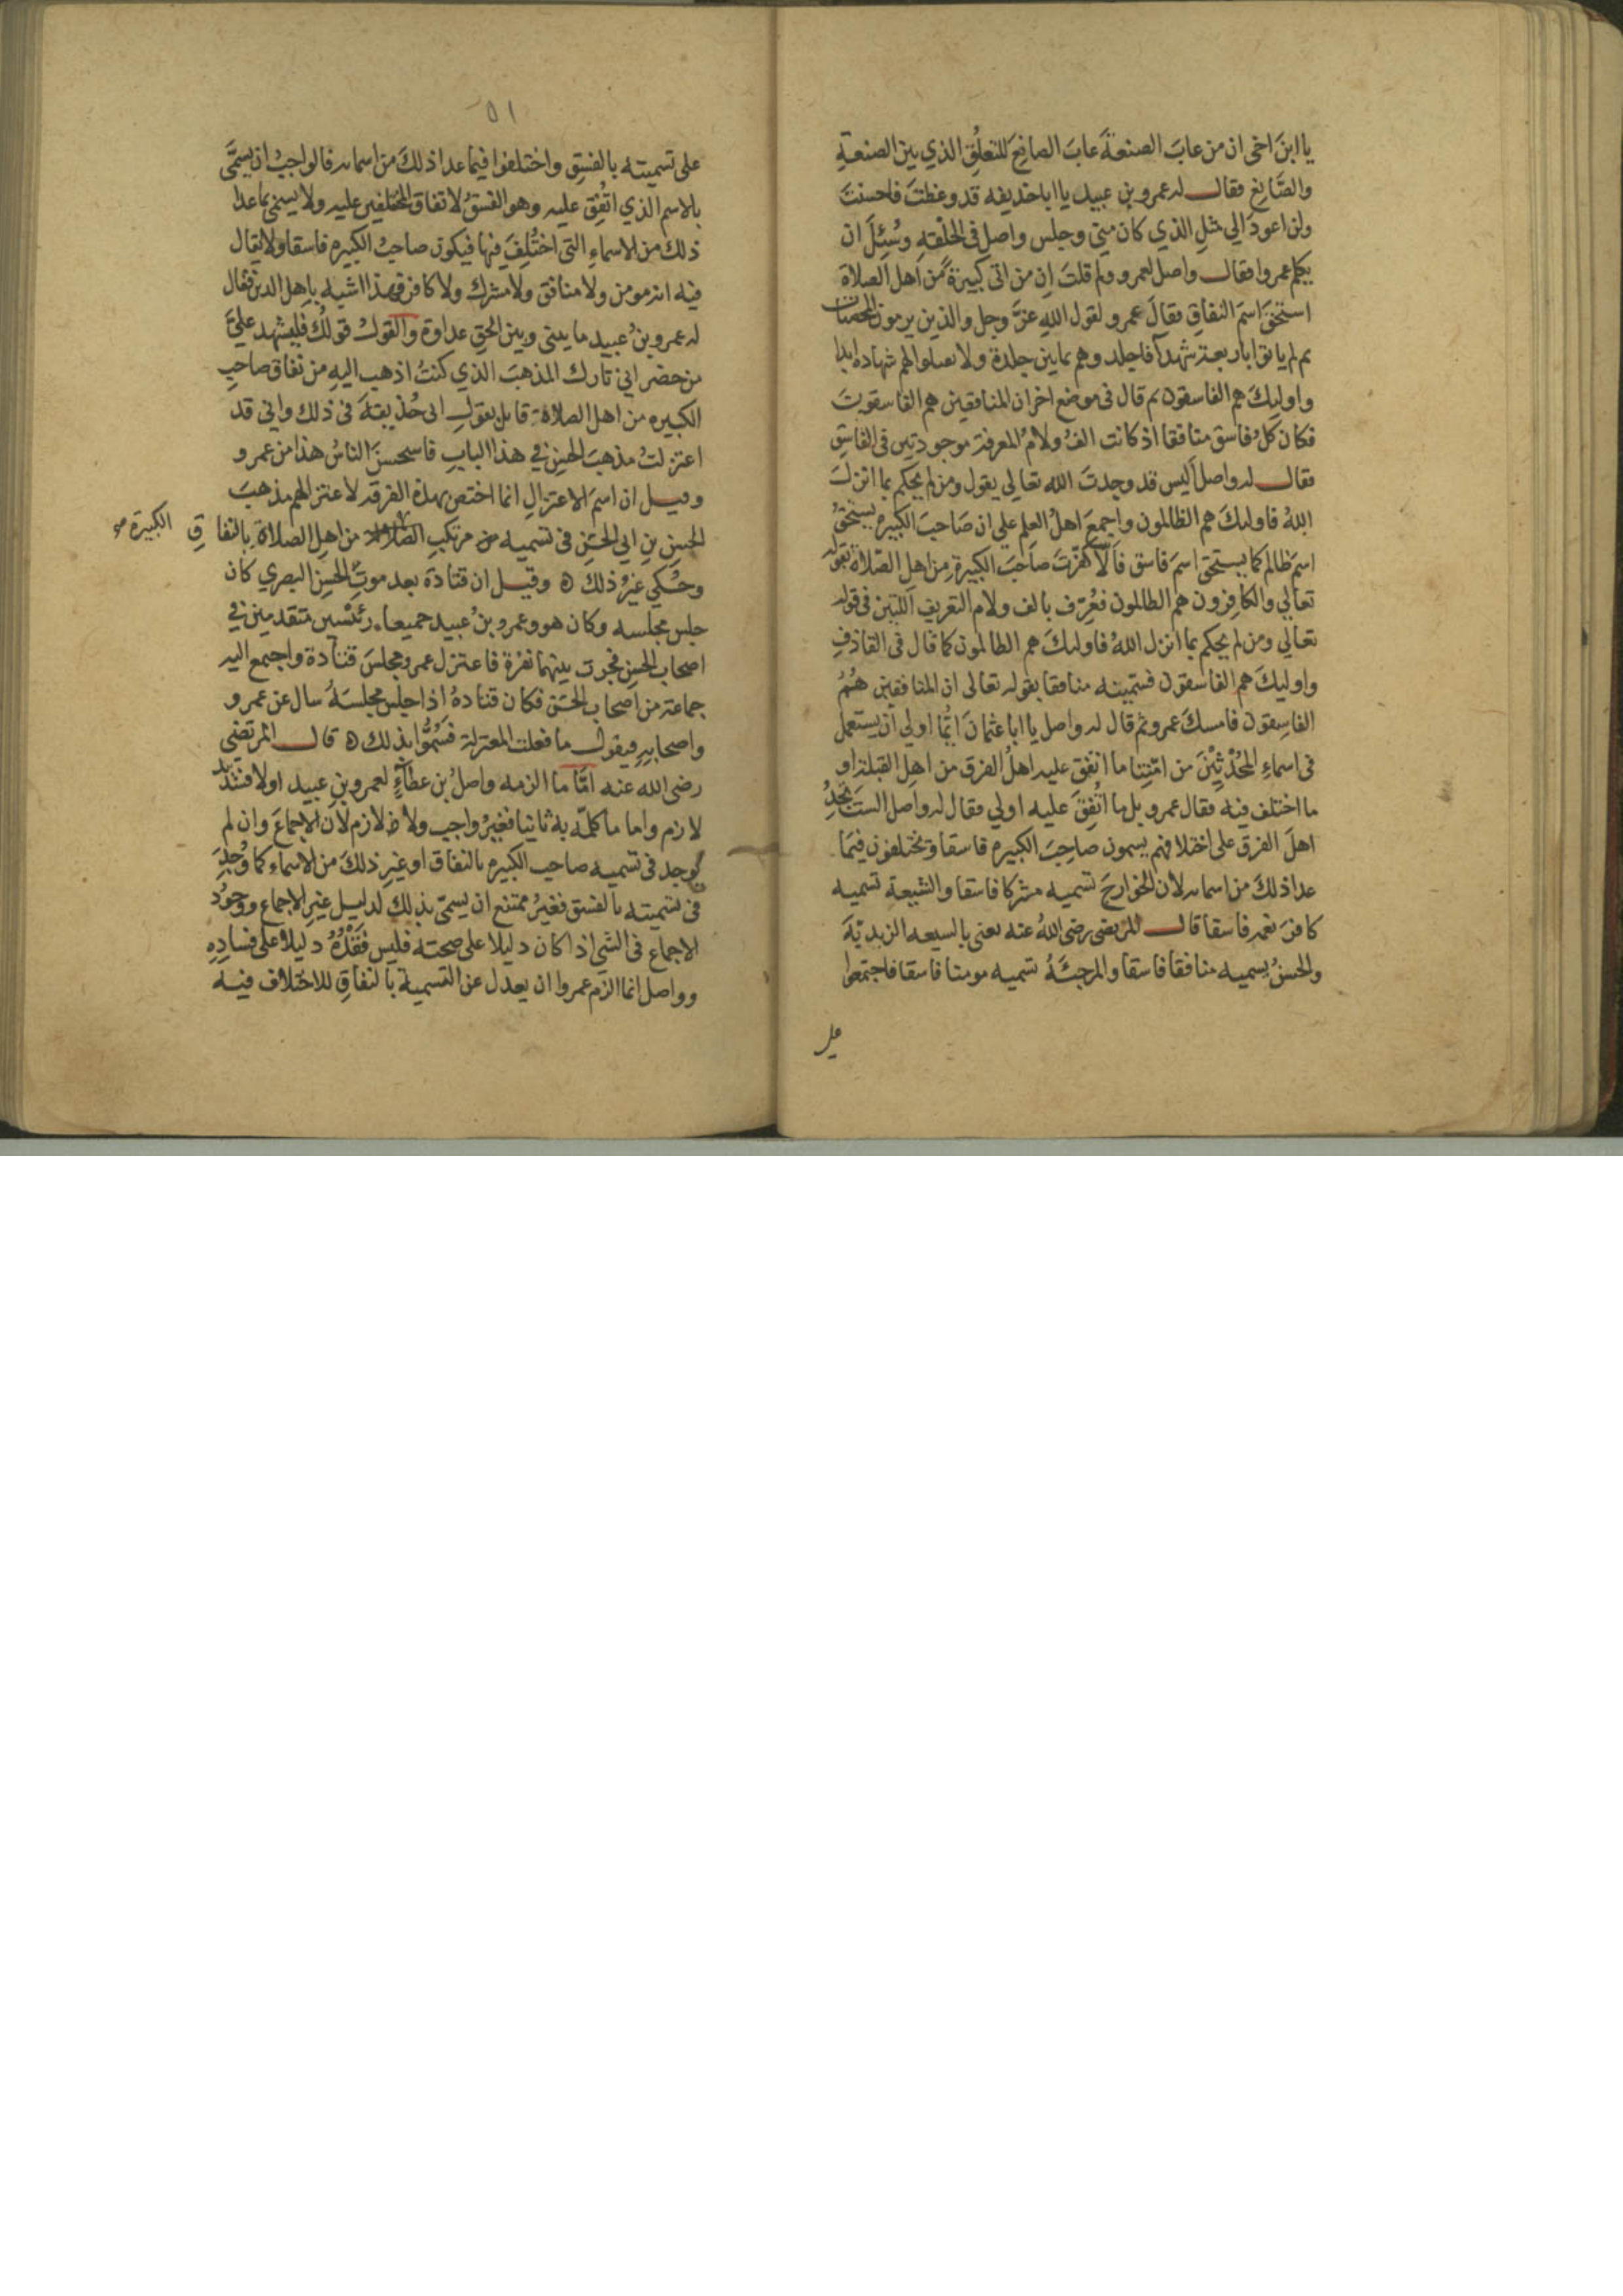 يا ابنَ اخي ان من عابَ الصنعةَ عابَ الصانعَ للتعلُّقِ الذي بين الصنعةِ
والصَّانعِ فقال له عمرو بن عبيد يا ابا حذيفه قد وعظتَ فاحسنتَ
ولن اعودَ الي مثلِ الذي كان مني وجلس واصل في الحلقةِ وسُئِلَ ان
يكلم عمروا فقال واصل لعمرو ولم قلتَ ان من اتى كبيرةً من اهل الصلاة
استحقَّ اسمَ النفاقِ فقالَ عمرو لقول اللهِ عزَّ وجل والذين يرمون المحصنات
ثم لم ياتوا باربعة شهدآ فاجلدوهم ثمانين جلدة ولا تقبلوا لهم شهاده ابدا
واوليكَ هم الفاسقون ثم قال في موضع اخر ان المنافقين هم الفاسقون
فكان كلُّ فاسق منافقا اذ كانت الفُ ولامُ المعرفة موجودتين في الفاسقِ
فقال له واصل اليس قد وجدتَ الله تعالي يقول ومن لم يحكم بما انزلَ
اللهُ فاوليكَ هم الظالمون واجمعَ اهلُ العلم علي ان صَاحبَ الكبيره يستحقُّ
اسمَ ظالم كما يستحق اسمَ فاسق فألا كفَّرتَ صاحبَ الكبيرةِ من اهل الصّلاة بقوله
تعالي والكافرون هم الظالمون فعُرِّف بالف ولام التعريف اللتين في قوله
تعالي ومن لم يحكم بما انزل اللهُ فاوليكَ هم الظالمون كما قال في القاذفِ
واوليكَ هم الفاسقون فسميته منافقا بقوله تعالى ان المنافقين هُمُ
الفاسِقون فامسكَ عمرو ثم قال له واصل يا ابا عثمانَ ايُّما اولي ان يستعمل
في اسماءِ المحُدْثِيْنَ من امّتِنا ما اتفق عليه اهلُ الفرق من اهلِ القبلة او
ما اختلف فيه فقال عمرو بل ما اتُّفِقَ عليه اولي فقال له واصل الستَ تجدُ
اهلَ الفرق على اختلافهم يسمون صاحِبَ الكبيره فاسقا ويختلفون فيمَا
عدا ذلكَ من اسمايه لان الخوارجَ تسميه مشركا فاسقا والشيعة تسميه
كافرَ نعمه فاسقا قال المرتضي رضي اللهُ عنه يعني بالشيعه الزيديّةَ
والحسنُ يسميه منافقا فاسقا والمرجئَةُ تسميه مومنا فاسقا فاجتمعوا
علي
٥١
على تسميته بالفسقِ واختلفوا فيما عدا ذلكَ من اسمايه فالواجبُ ان يسمَّى
بالاسم الذي اتُّفِقَ عليه وهو الفسقُ لاتفاق المختلفين عليه ولا يسمى بما عدا
ذلك من الاسماءِ التي اختُلِفَ فيها فيكون صاحبُ الكبيره فاسقا ولا يقال
فيه انه مومن ولا منافق ولا مشرك ولا كافر فهذا اشبه باهل الدين فقال
له عمرو بنُ عبيد ما بيني وبين الحقِ عداوة والقولُ قولُك فليشهد عليَّ
من حضر اني تارك المذهبَ الذي كنتُ اذهب اليه من نفاق صاحبِ
الكبيره من اهل الصلاة قايل بقولِ ابي حُذيفةَ في ذلك واني قد
اعتزلتُ مذهبَ الحسن في هذا البابِ فاستحسنَ الناسُ هذا من عمرو
وقيل ان اسمَ الاعتزالِ انما اختص بهذه الفرقه لاعتزالهم مذهبَ
الحسن بن ابي الحسَنِ في تسميه مرتكبِ الكبيرة من اهل الصلاة بالنفاقِ
وحُكي غيرُ ذلك ٥ وقيل ان قتادة بعد موتِ الحسن البصري كان
جلس مجلسه وكان هو وعمرو بنُ عبيد جميعا رئسين متقدمين في
اصحاب الحسن فجرت بينهما نفرة فاعتزل عمرو مجلسَ قتادة واجتمع اليه
جماعة من اصحاب الحسَن فكان قتادةُ اذا جلس مجلسَهُ سال عن عمرو
واصحابِهِ فيقول ما فعلت المعتزلة فسُمُّوا بذلك ٥ قال المرتضي
رضي الله عنه امّا ما الزمه واصلُ بن عطآءٍ لعمرو بن عبيد اولا فسديد
لازم واما ما كلمّه به ثانيا فغيرُ واجب ولا لازم لان الاجماعَ وان لم
يوجد في تسميه صاحبِ الكبيره بالنفاق او غيرِ ذلكَ من الاسماءِ كما وُجِدَ
في تسميته بالفسق فغيرُ ممتنع ان يسمّى بذلك لدليل غيرِ الاجماع ووجودُ
الاجماع في الشي اذا كان دليلا على صحته فليس فَقْدُهُ دليلا على فسادِهِ
وواصل انما الزم عمروا ان يعدل عن التسمية بالنفاقِ للاختلاف فيه